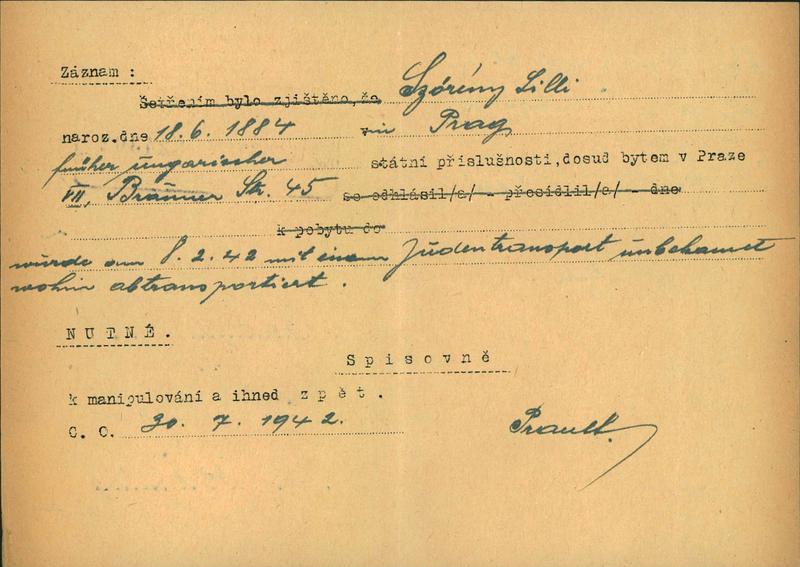 Záznam :
Šetřením bylo zjištěno, že Szórény Lilli
naroz. dne 18.6. 1884 in Prag
früher ungarischer státní příslušnosti, dosud bytem v Praze
VII, Str. 45 se odhlásil/a/ - přesídlil/a/ - dne
k pobytu do
wurde am 8.2.42 mit einem Judentransport unbekannt
wohin abtransportiert.
NUTNÉ.
Spisovně
k manipulování a ihned zpět.
C. O. 30. 7. 1942.